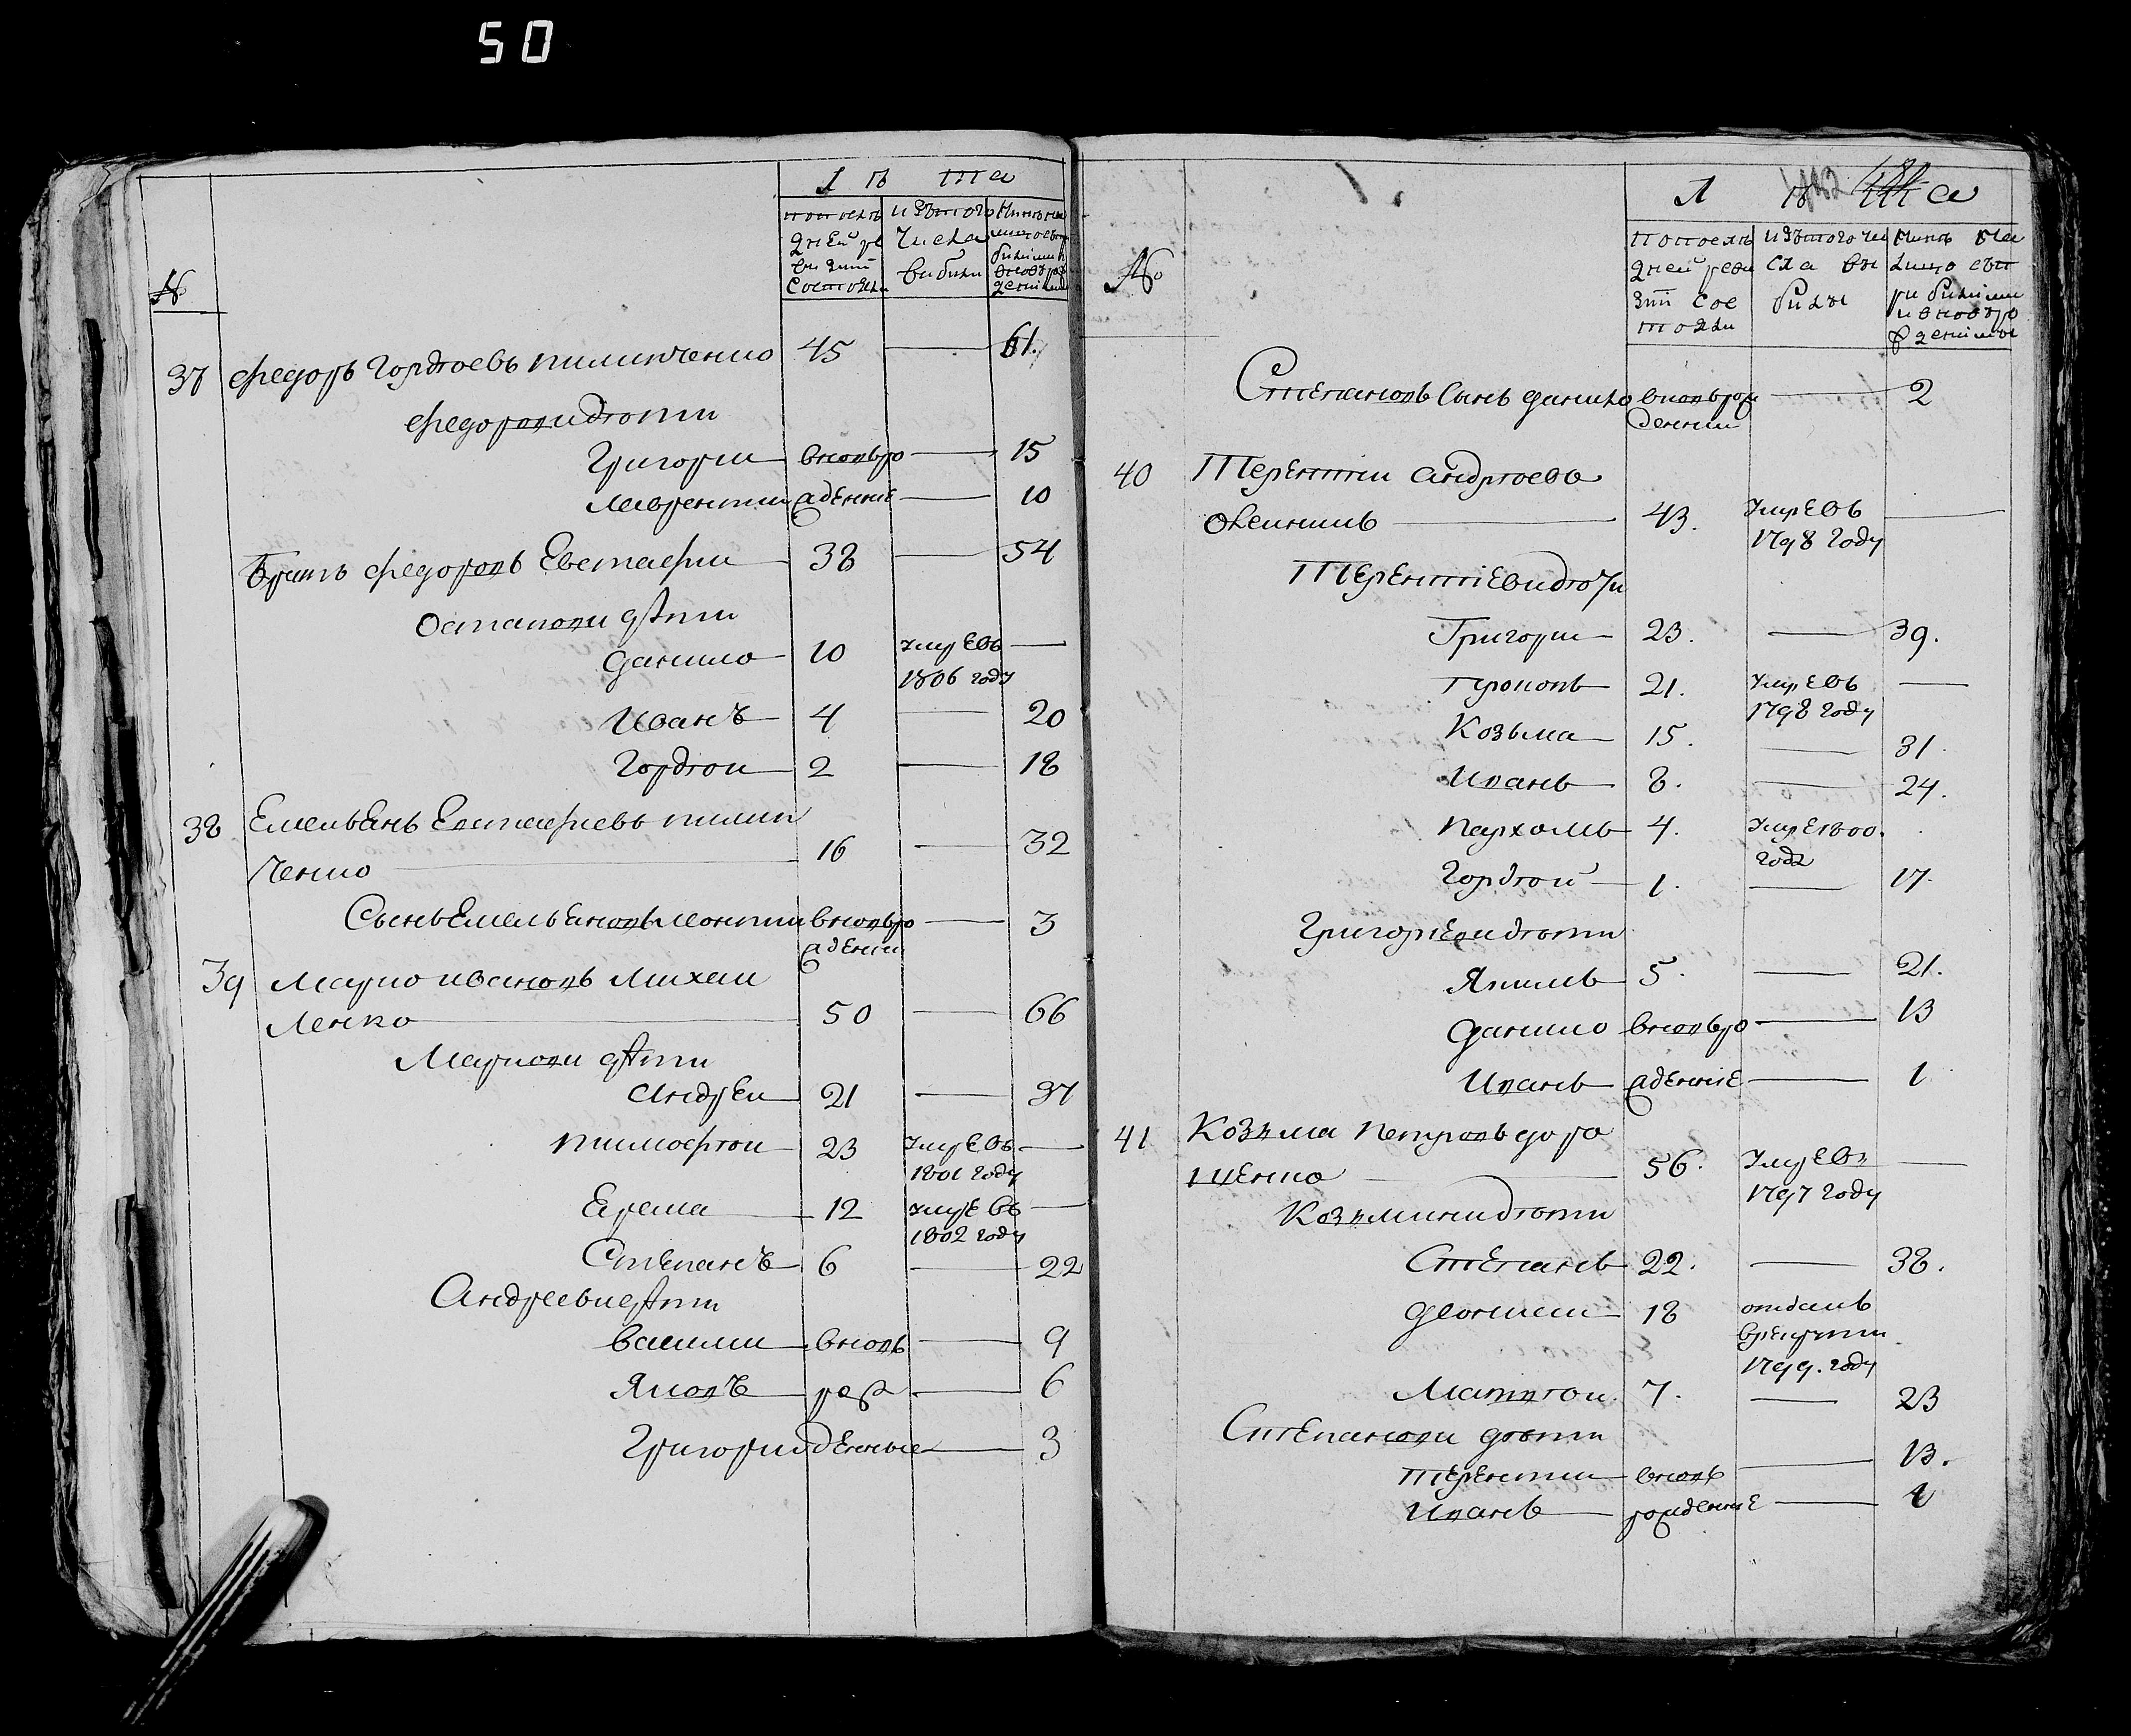 50
Лѣта
№
по последней ревизіи состояли
изъ того числа выбыли
нынѣ налицо съ прибылыми и вновь рожденными
37 Федоръ Гордѣевъ пилипченко 45 — 61.
Федоровы дѣти
Григори вновь ро — 15
Лаврентии жденые — 10
Братъ Федоровъ Евстафи 38 — 54
Остаповы дѣти
Данило 10 умре въ —
1806 году
Иванъ 4 — 20
Гордѣи 2 — 18
38 Емельянъ Евстафиевъ пилип
ченко 16 — 32
Сынъ Емельяновъ Леонти вновь ро — 3
ждении
39 Марко Ивановъ Михаи
ленко 50 — 66
Марковы дѣти
Андреи 21 — 37
Тимофѣи 23 умре въ —
1801 году
Ерема 12 умре въ —
1802 году
Степанъ 6 — 22
Андреевы дѣти
Василии вновь — 9
Яковъ рож — 6
Григори денные — 3
Лѣта
№
по последней ревизіи состояли
изъ того числа выбыли
нынѣ на лицо съ прибылыми и вновь рожденными
Степановъ сынъ Данило вновь ро — 2
жденни
40 Терентии Андрѣевъ
43. умре въ —
1798 году
Терентіевы дѣти
Григори 23. — 39.
Прокопъ 21. умре въ —
1798 году
Козьма 15. — 31.
Иванъ 8. — 24.
Пархомъ 4. умре 1800.
года
Гордѣй 1. — 17.
Григориевы дѣти
Якимъ 5. — 21.
Данило вновь ро — 13
Иванъ жденние — 1
41 Козма Петровъ доро
щенко 56. умре въ —
1797 году
Козмины дѣти
Степанъ 22. — 38.
18 отданъ
в рекруты
1799. году
Матвѣи 7. — 23
Степановы дѣти
Терентии вновь — 13.
Иванъ рожденние —